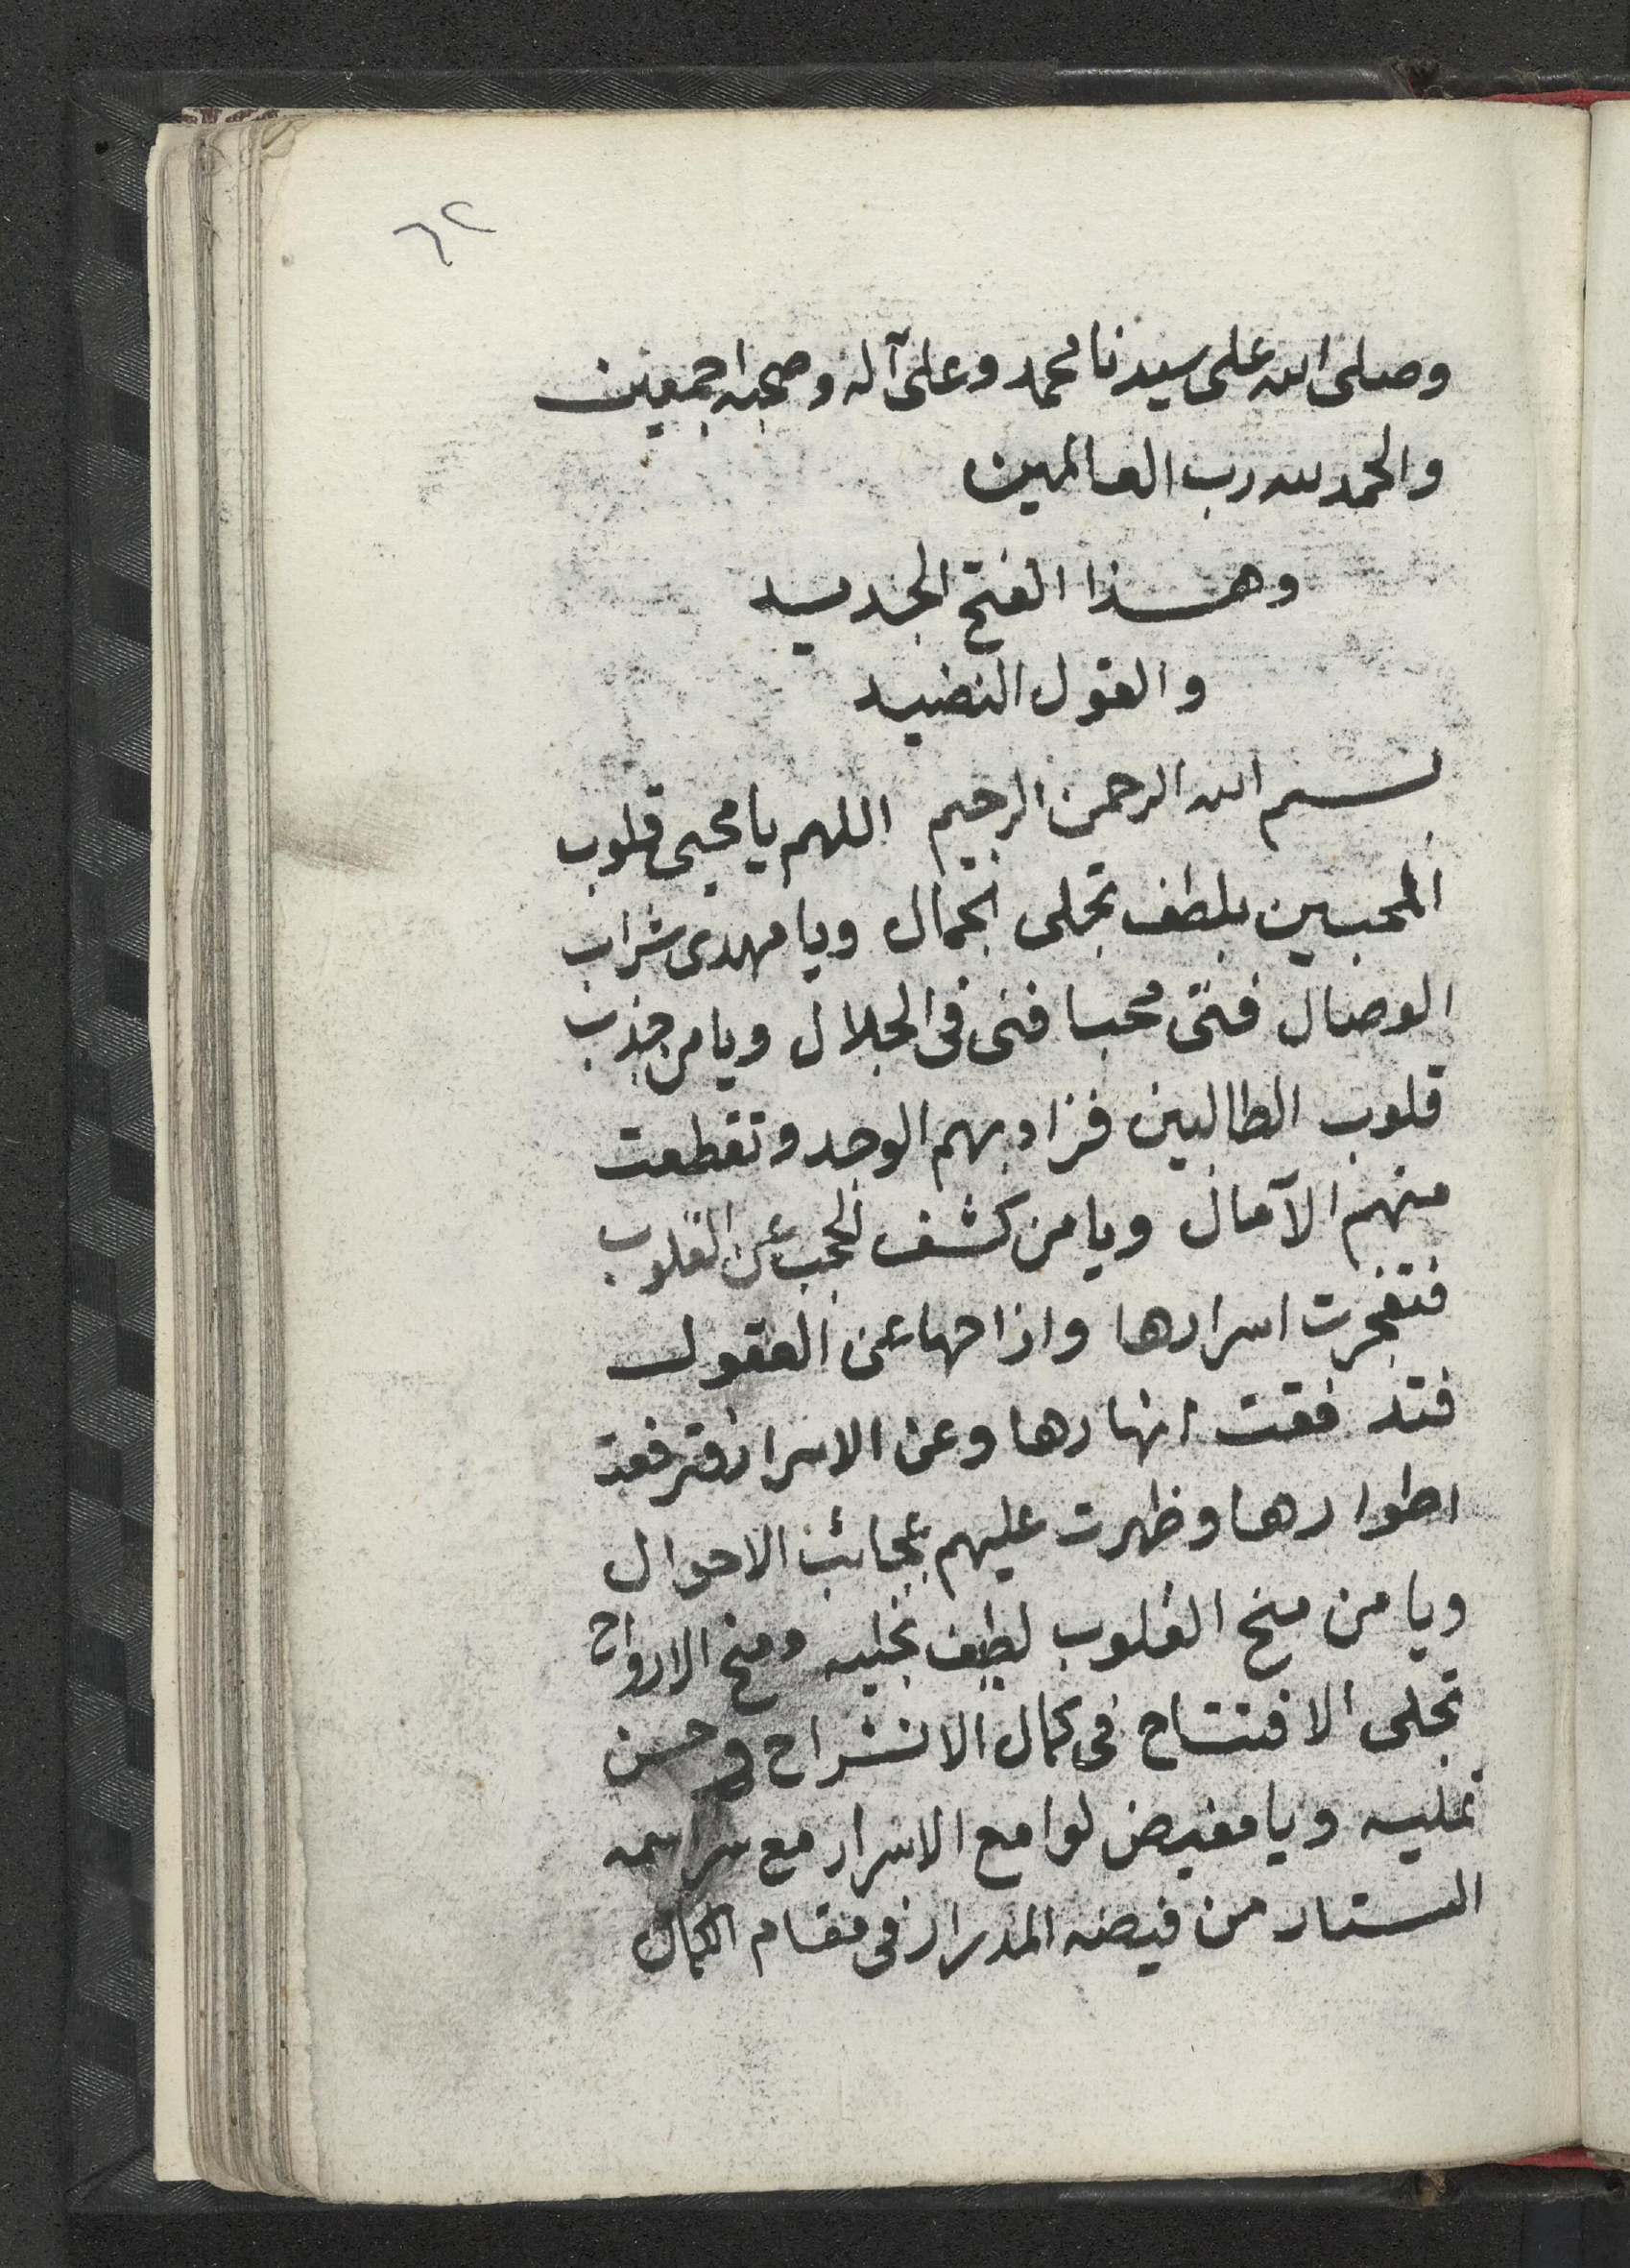 ٦٢
وصلى الله على سيدنا محمد وعلى آله وصحبه اجمعين
والحمد لله رب العالمين
وهذا الفتح الجديد
والقول النضيد
بسم الله الرحمن الرحيم اللهم يا محيى قلوب
المحبين بلطف تجلى الجمال ويا مهدى شراب
الوصال فتى محبا فنى فى الجلال ويا من جذب
قلوب الطالبين فزاد بهم الوجد وتقطعت
منهم الآمال ويا من كشف الحجب عن القلوب
فتفجرت اسرارها وازاحها عن العقول
فتدفقت انهارها وعن الاسرار فترفعة
اطوارها وظهرت عليهم عجائب الاحوال
ويا من منح القلوب لطيف تجليه ومنح الارواح
تجلى الافتتاح فى كمال الانشراح وحسن
تمليه ويا مفيض لوامع الاسرار مع سر اسمه
الستار من فيضه المدرار فى مقام الكمال